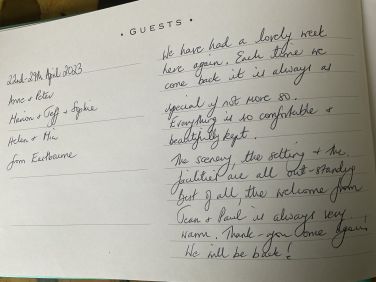 • GUESTS •
22nd-29th April 2023
Anne + Peter
Marion + Jeff + Sophie
Helen + Mic
from Eastbourne
We have had a lovely week
here again. Each time we
come back it is always as
special if not more so.
Everything is so comfortable +
beautifully kept.
The scenery, the setting + the
facilities are all out-standing
best of all, the welcome from
Jean + Paul is always very
warm. Thank-you once again!
We will be back!